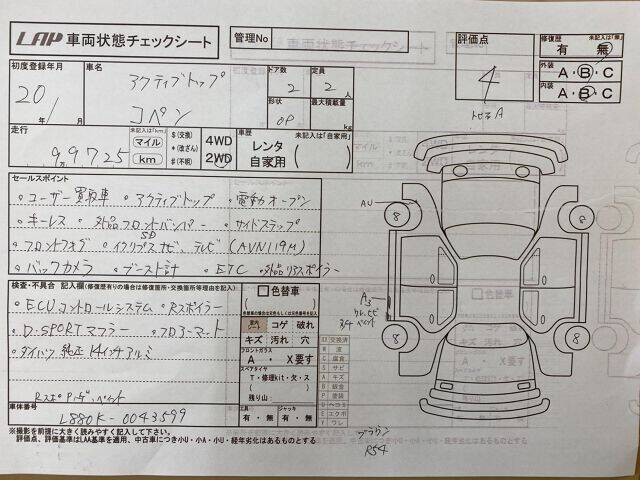 LAP 車両状態チェックシート
管理No
評価点
4
トビラA
修復歴 未記入は「無」
有 無
外装 A・B・C
内装 A・B・C
初度登録年月
20年 1月
車名
アクティブトップ
コペン
ドア数 2
定員 2人
形状 OP
最大積載量 kg
走行
99725
未記入は「km」
マイル
km
$(交換)
*(改ざん)
#(不明)
4WD
2WD
車歴 未記入は「自家用」
レンタ
自家用
セールスポイント
・ユーザー買取車 ・アクティブトップ ・電動オープン
・キーレス ・外品フロントバンパー ・サイドステップ
・フロントフォグ ・イクリプスSDナビ、テレビ (AVN119M)
・バックカメラ ・ブースト計 ・ETC ・外品リアスポイラー
検査・不具合 記入欄(修復歴有りの場合は修復箇所・交換箇所等を記入)
・ECUコントロールシステム ・Rスポイラー
・D-SPORTマフラー ・フロアーマット
・ダイハツ純正14インチアルミ
色替車
色替車の場合は元色もしくは元色番号を記入
コゲ 破れ
キズ 汚れ 穴
フロントガラス
A ・ X要す
スペアタイヤ
T・修理kit・欠・ス
残り山
工具
有・無
ジャッキ
有・無
車体番号
L880K-0043599
※撮影を前提に大きく読みやすく記入して下さい。
評価点、評価基準はLAA基準を適用、中古車につき小U・小A・小U・経年劣化はあるものとする
AU
8
8
8
8
A3
ブラウン
R54